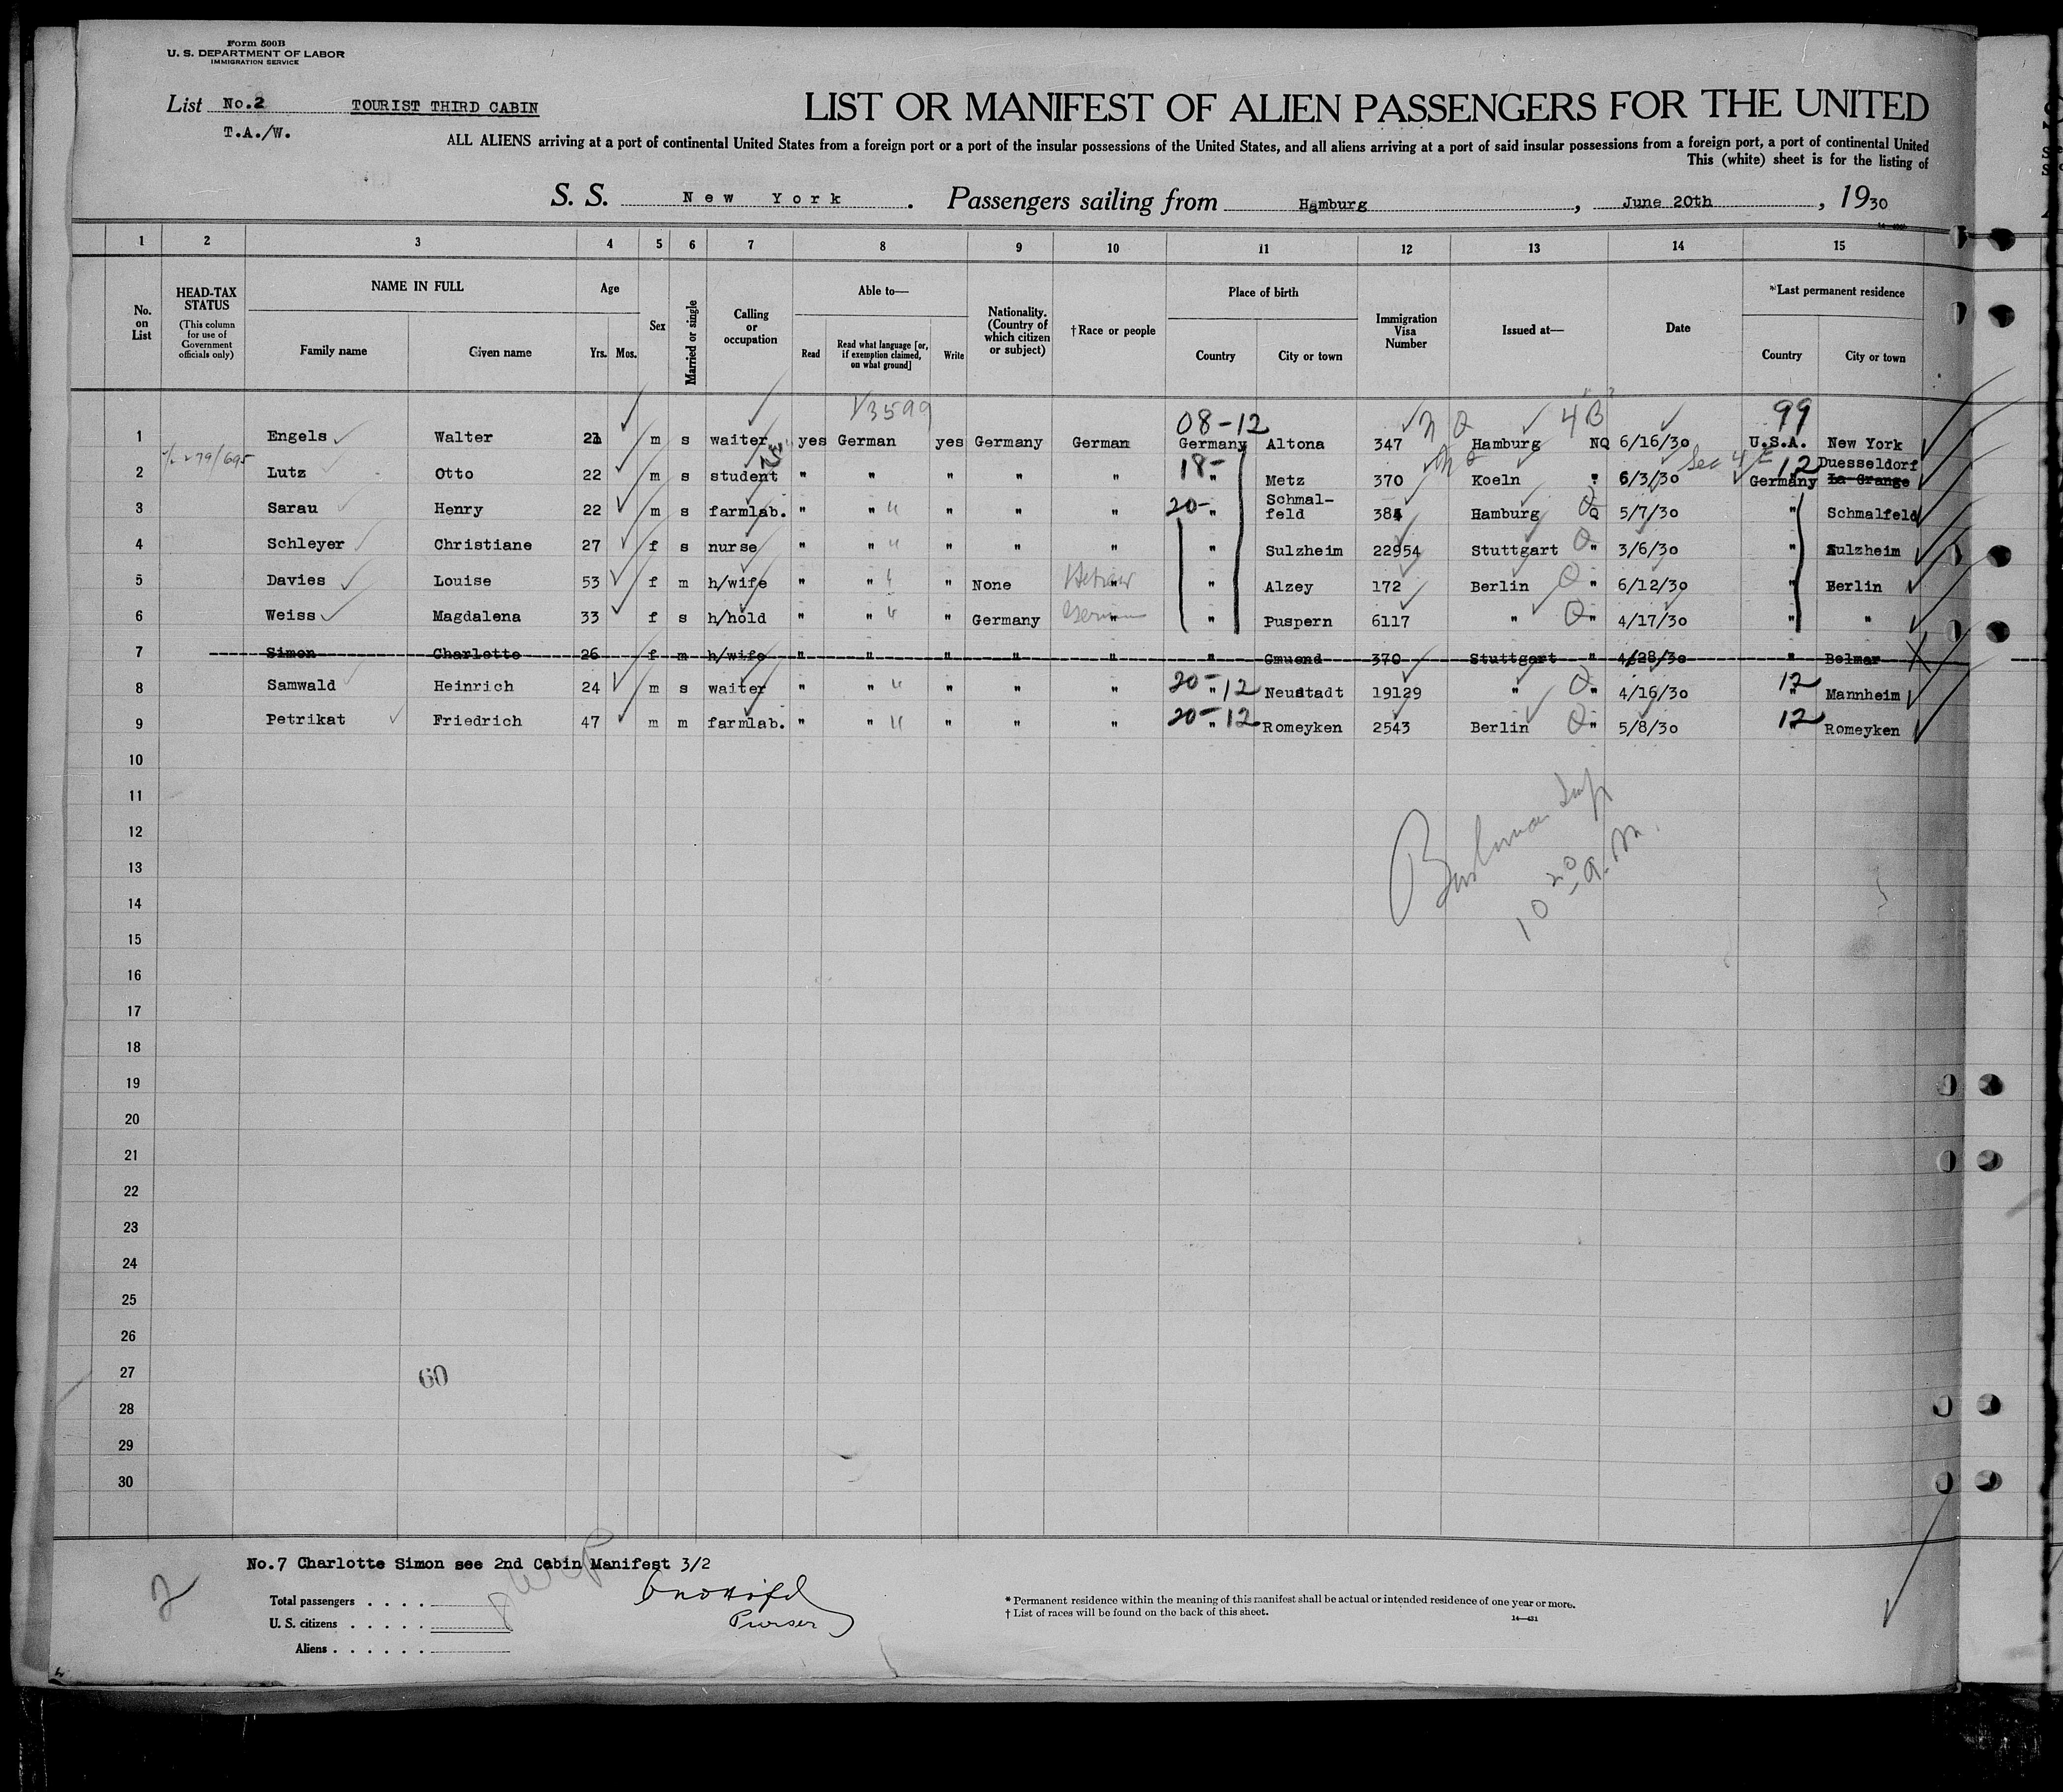 Form 500B
U. S. DEPARTMENT OF LABOR
IMMIGRATION SERVICE
List No.2 TOURIST THIRD CABIN
T.A./W.
LIST OR MANIFEST OF ALIEN PASSENGERS FOR THE UNITED
ALL ALIENS arriving at a port of continental United States from a foreign port or a port of the insular possessions of the United States, and all aliens arriving at a port of said insular possessions from a foreign port, a port of continental United
This (white) sheet is for the listing of
S. S. New York . Passengers sailing from Hamburg , June 20th , 1930
1 2 3 4 5 6 7 8 9 10 11 12 13 14 15
No. on List
HEAD-TAX STATUS
(This column for use of Government officials only)
NAME IN FULL
Family name Given name
Age
Yrs. Mos.
Sex
Married or single
Calling or occupation
Able to—
Read
Read what language [or, if exemption claimed, on what ground]
Write
Nationality. (Country of which citizen or subject)
†Race or people
Place of birth
Country City or town
Immigration Visa Number
Issued at—
Date
*Last permanent residence
Country City or town
3599 08-12 N Q 4B 99
1 Engels Walter 21 m s waiter yes German yes Germany German Germany Altona 347 Hamburg NQ 6/16/30 U.S.A. New York
18- N Q Sec 4 E 12 Duesseldorf
2 Lutz Otto 22 m s student " " " " " " Metz 370 Koeln " 6/3/30 Germany La Grange
20- Schmal-
3 Sarau Henry 22 m s farmlab. " " " " " " feld 384 Hamburg Q 5/7/30 " Schmalfeld
4 Schleyer Christiane 27 f s nurse " " " " " " Sulzheim 22954 Stuttgart Q " 3/6/30 " Sulzheim
5 Davies Louise 53 f m h/wife " " " None Hebrew " " Alzey 172 Berlin Q " 6/12/30 " Berlin
6 Weiss Magdalena 33 f s h/hold " " " Germany German " " Puspern 6117 " Q " 4/17/30 " "
7 Simon Charlotte 26 f m h/wife " " " " " " Gmuend 370 Stuttgart " 4/28/30 " Belmar
8 Samwald Heinrich 24 m s waiter " " " " " 20- " 12 Neustadt 19129 " Q " 4/16/30 12 " Mannheim
9 Petrikat Friedrich 47 m m farmlab. " " " " " 20- " 12 Romeyken 2543 Berlin Q " 5/8/30 12 " Romeyken
10
11
12
13
14
15
16
17
18
19
20
21
22
23
24
25
26
27
28
29
30
10 20 A.M.
60
No.7 Charlotte Simon see 2nd Cabin Manifest 3/2
2
Total passengers . . . .
U. S. citizens . . . . .
Aliens . . . . . .
Purser
* Permanent residence within the meaning of this manifest shall be actual or intended residence of one year or more.
† List of races will be found on the back of this sheet.
14—431